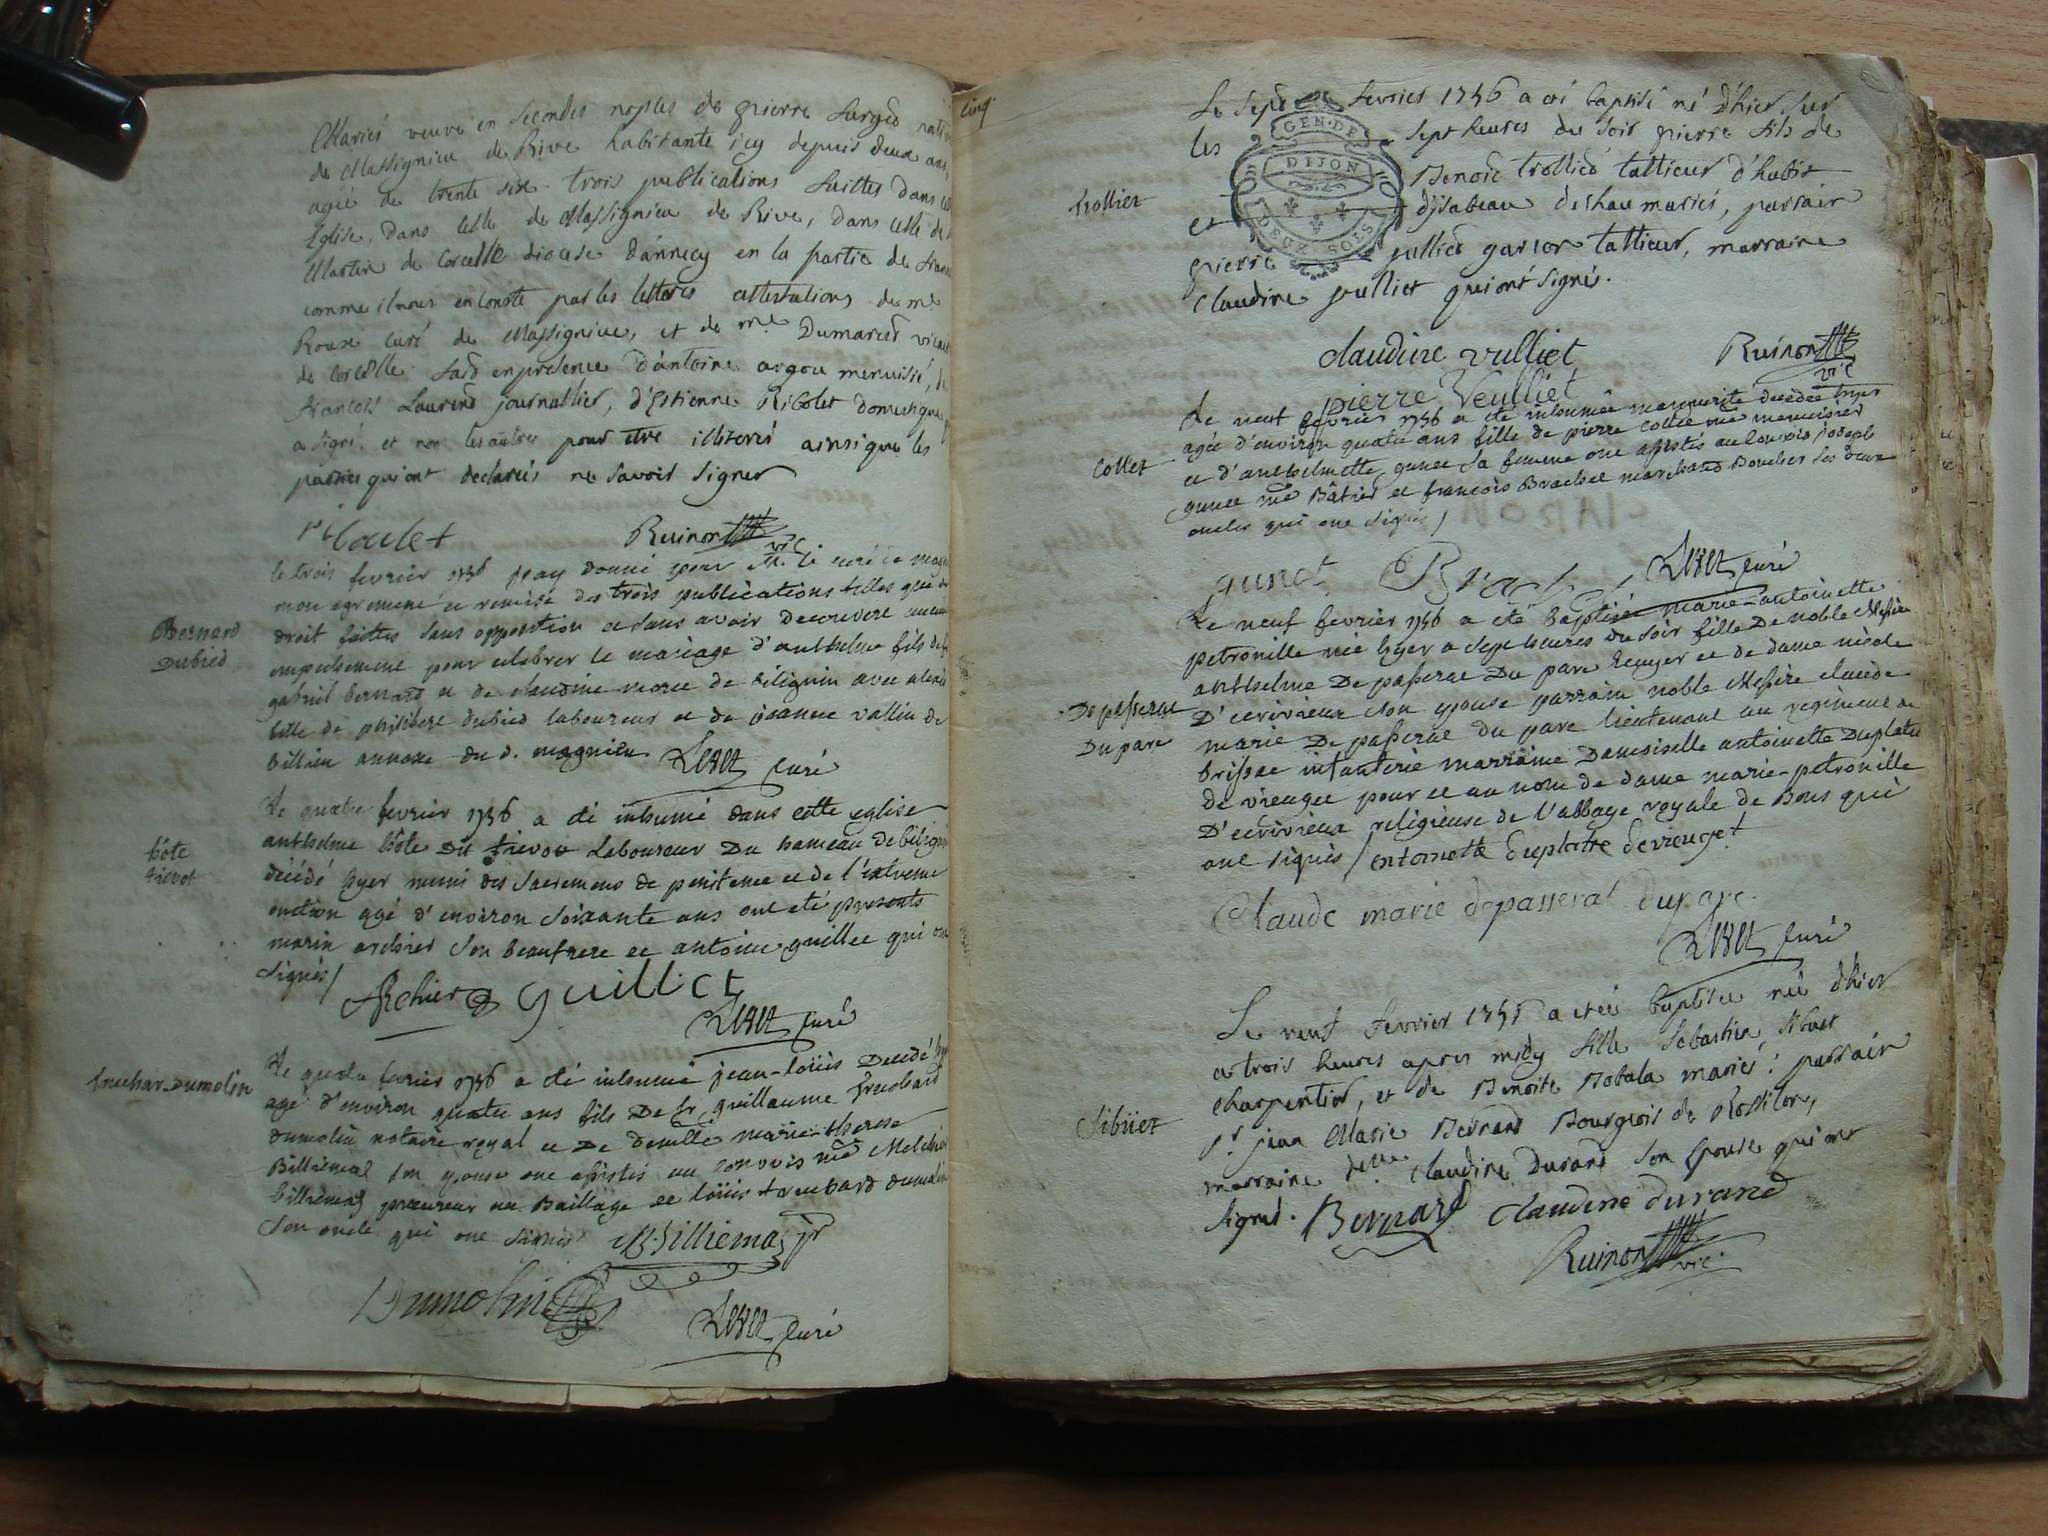 Mariés veuve en secondes nopses de pierre
de Massignieu de Rive habitante icy depuis deux ans,
agée de trente six. trois publications faittes dans
Eglise, dans celle de Massignieu de Rive, dans celle de
Martin de Corcelle diocese d'annecy en la partie de
comme il nous en conste par les lettres attestations de mre
Roux curé de Massignieu, et de mre Dumarest
de corcelle. fait en presence d'antoine argou menuisié,
francois Laurend journallier, d'Estienne Ribolet domestique
a signé. et non les autres pour etre illiterés ainsi que les
parties qui ont declarés ne savoir signer
Ruinon vic
Bernard
Dubied
le trois fevrier 1756 j'ay donné pour Mr. le curé de
mon egrement et remise des trois publications telles que de
droit faittes sans opposition et sans avoir decouvert aucun
empechement pour celebrer le mariage d'anthelme fils de
gabriel bernard et de claudine more de biliguin avec
fille de philibert dubied laboureur et de jeanne vallin de
billieu annexe du d. magnieu
curé
hôte
trevot
Le quatre fevrier 1756 a été inhumé dans cette eglise
anthelme hôte dit trevot Laboureur Du hameau de
décédé hyer muni des sacremens de penitence et de l'extreme
onction agé d'environ soixante ans ont été presents
marin archier son beaufrere et antoine guillet qui ont
signés/
Archier guillict
curé
truchar-Dumolin
Le quatre fevrier 1756 a été inhumé jean-loüis Decedé
agé d'environ quatre ans fils De Sr guillaume truchard
dumolin notaire royal et De demlle marie-therese
Billiemaz son epouse ont assistés au convois me
billiemaz procureur au Baillage et loüis truchard dumolin
son oncle qui ont signés Billiemaz
Dumolin
curé
cinq
GEN. DE
DIJON
DEUX SOLS
trollier
Le sept fevrier 1756 a eté baptisé né d'hier sur
les sept heures du soir pierre fils de
Benoit trollier tallieur d'habit
et d'isabeau deschau mariés, parrain
pierre vulliet garcon tallieur, marraine
claudine vulliet qui ont signés.
claudine vulliet
Ruinon vic
pierre Veulliet
Collet
Le neuf fevrier 1756 a été inhumée marguerite decedée hyer
agée d'environ quatre ans fille de pierre collet me menuisier
et d'anthelmette gunet sa femme ont assistés au convois joseph
gunet me Bâtier et francois Brachet marchand Boucher ses deux
oncles qui ont signés/
gunet Brachet
curé
De passerat
Du parc
Le neuf fevrier 1756 a été baptisée marie-antoinette
petronille née hyer a sept heures du soir fille De noble Messire
anthelme De passerat Du parc Ecuyer et de dame nicole
D'ecrivieux son epouse parrain noble Messire claude
marie De passerat du parc lieutenant au regiment de
brissac infanterie marraine Damoiselle antoinette Duplatre
de vieuget pour et au nom de dame marie-petronille
D'ecrivieux religieuse de l'abbaye royale de Bons qui
ont signés/ entoinette duplatre de vieuget
Claude marie depasserat duparc.
curé
Sibüet
Le neuf fevrier 1756 a etée baptisée née d'hier
a trois heures apres midy fille Sebastien sibuet
charpentier, et de Benoite Bobala mariés: parrain
sr. jean Marie Bernard Bourgeois de Rossilon,
marraine delle Claudine Durand son Epouse qui ont
signés. Bernard Claudine durand
Ruinon vic.